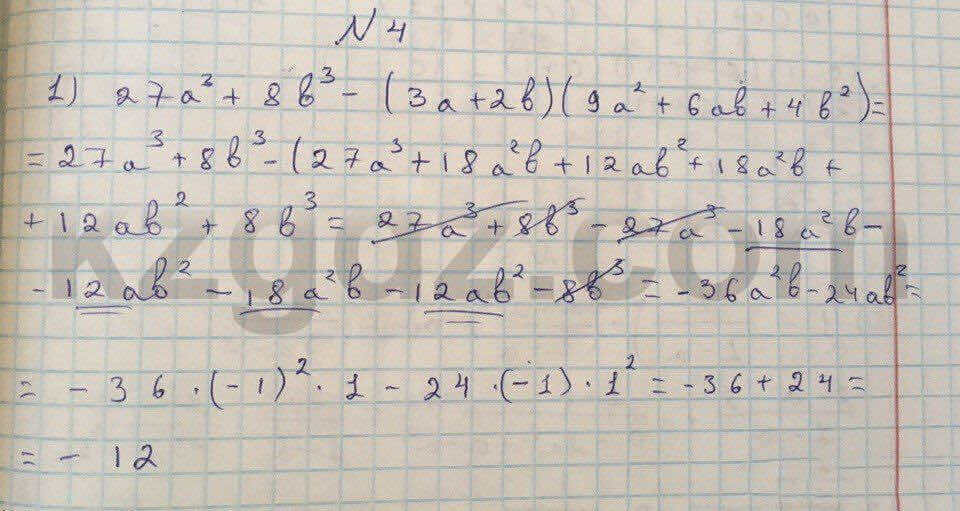 N 4
1) 27a³ + 8b³ - (3a + 2b)(9a² + 6ab + 4b²) =
= 27a³ + 8b³ - (27a³ + 18a²b + 12ab² + 18a²b +
+ 12ab² + 8b³ = 27a³ + 8b³ - 27a³ - 18a²b -
- 12ab² - 18a²b - 12ab² - 8b³ = -36a²b - 24ab² =
= - 36 · (-1)² · 1 - 24 · (-1) · 1² = -36 + 24 =
= - 12
kzgdz.com